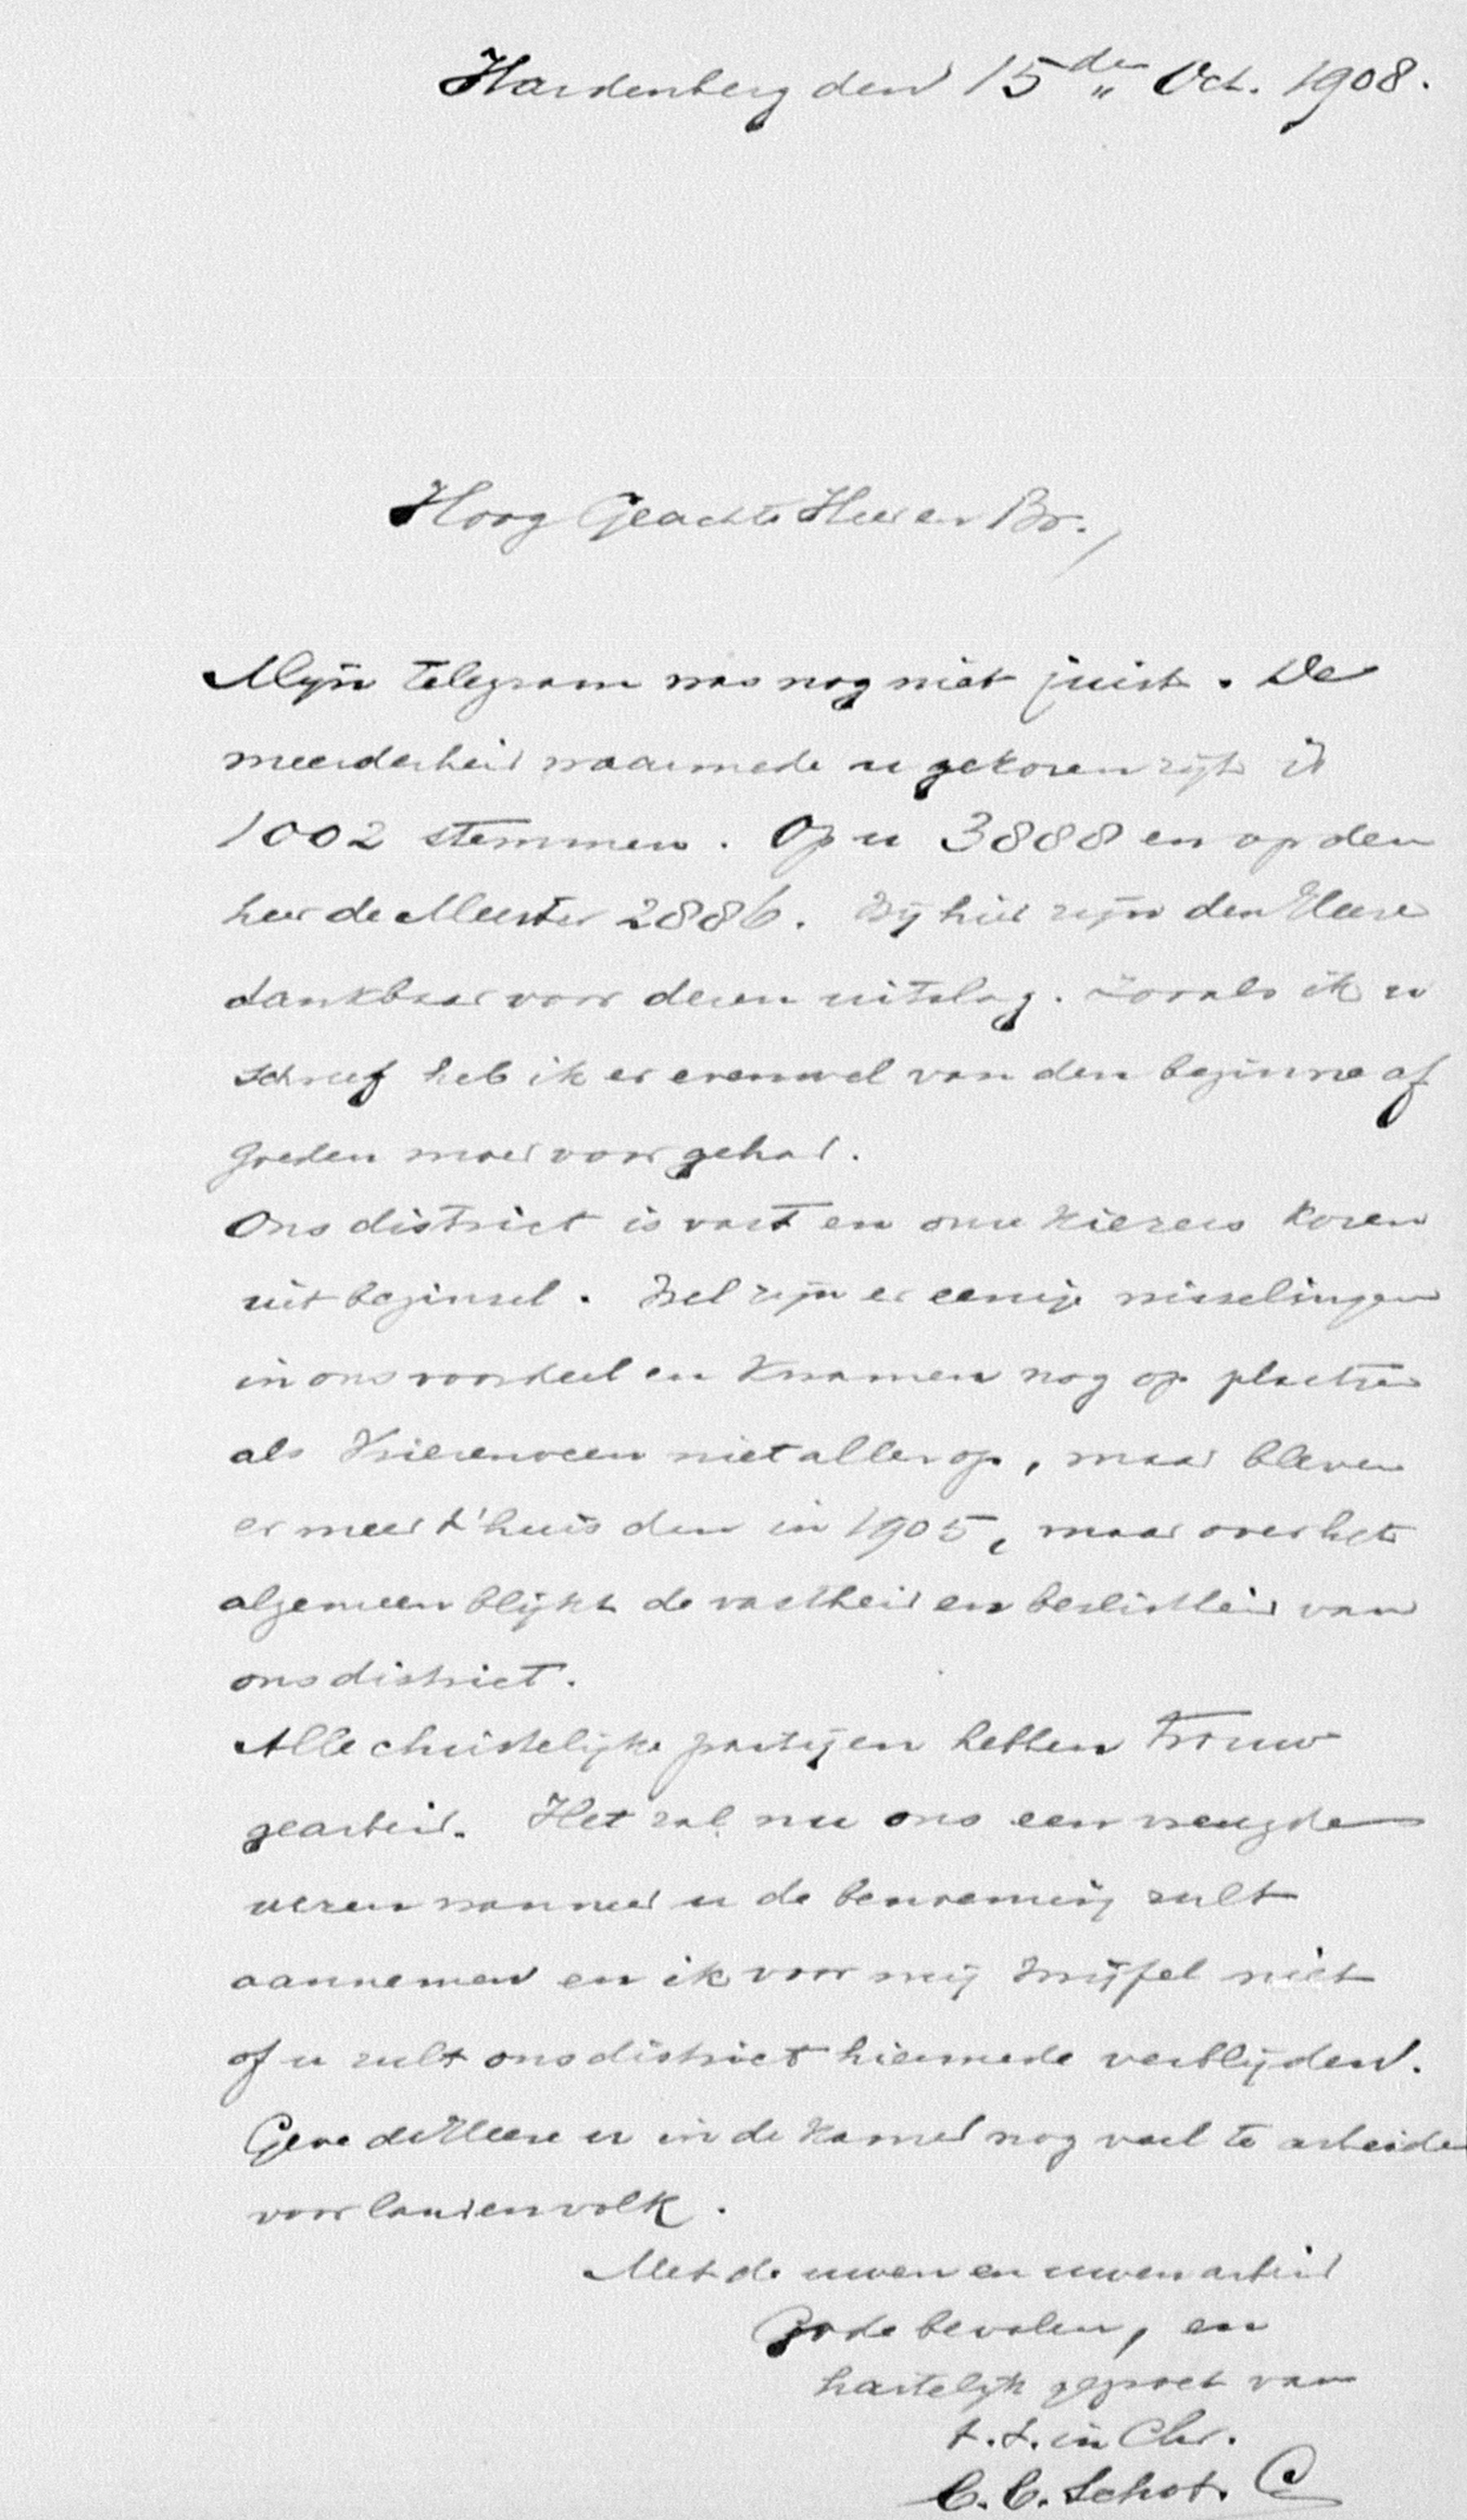 Hardenberg den 15den Oct. 1908.
Hoog Geachte Heer en Br.,
Mijn telegram was nog niet juist. De
meerderheid waarmede u gekozen zijt is
1002 stemmen. Op u 3888 en op den
heer de Meester 2886. Wij hier zijn den Heere
dankbaar voor dezen uitslag. Zooals ik u
schreef heb ik er evenwel van den beginne af
goeden moed voor gehad.
Ons district is vast en onze kiezers kozen
uit beginsel. Wel zijn er eenige wisselingen
in ons voordeel en kwamen nog op plaatsen
als Vriezenveen niet allen op, maar bleven
er meer t'huis dan in 1905, maar over het
algemeen blijkt de vastheid en beslistheid van
ons district.
Alle christelijke partijen hebben trouw
gearbeid. Het zal nu ons een vreugde
wezen wanneer u de benoeming zult
aannemen en ik voor mij twijfel niet
of u zult ons district hiermede verblijden.
Geve de Heere u in de Kamer nog veel te arbeiden
voor land en volk.
Met de uwen en uwen arbeid
Gode bevolen, en
hartelijk gegroet van
t.t. in Chr.
C. C. Schot. C